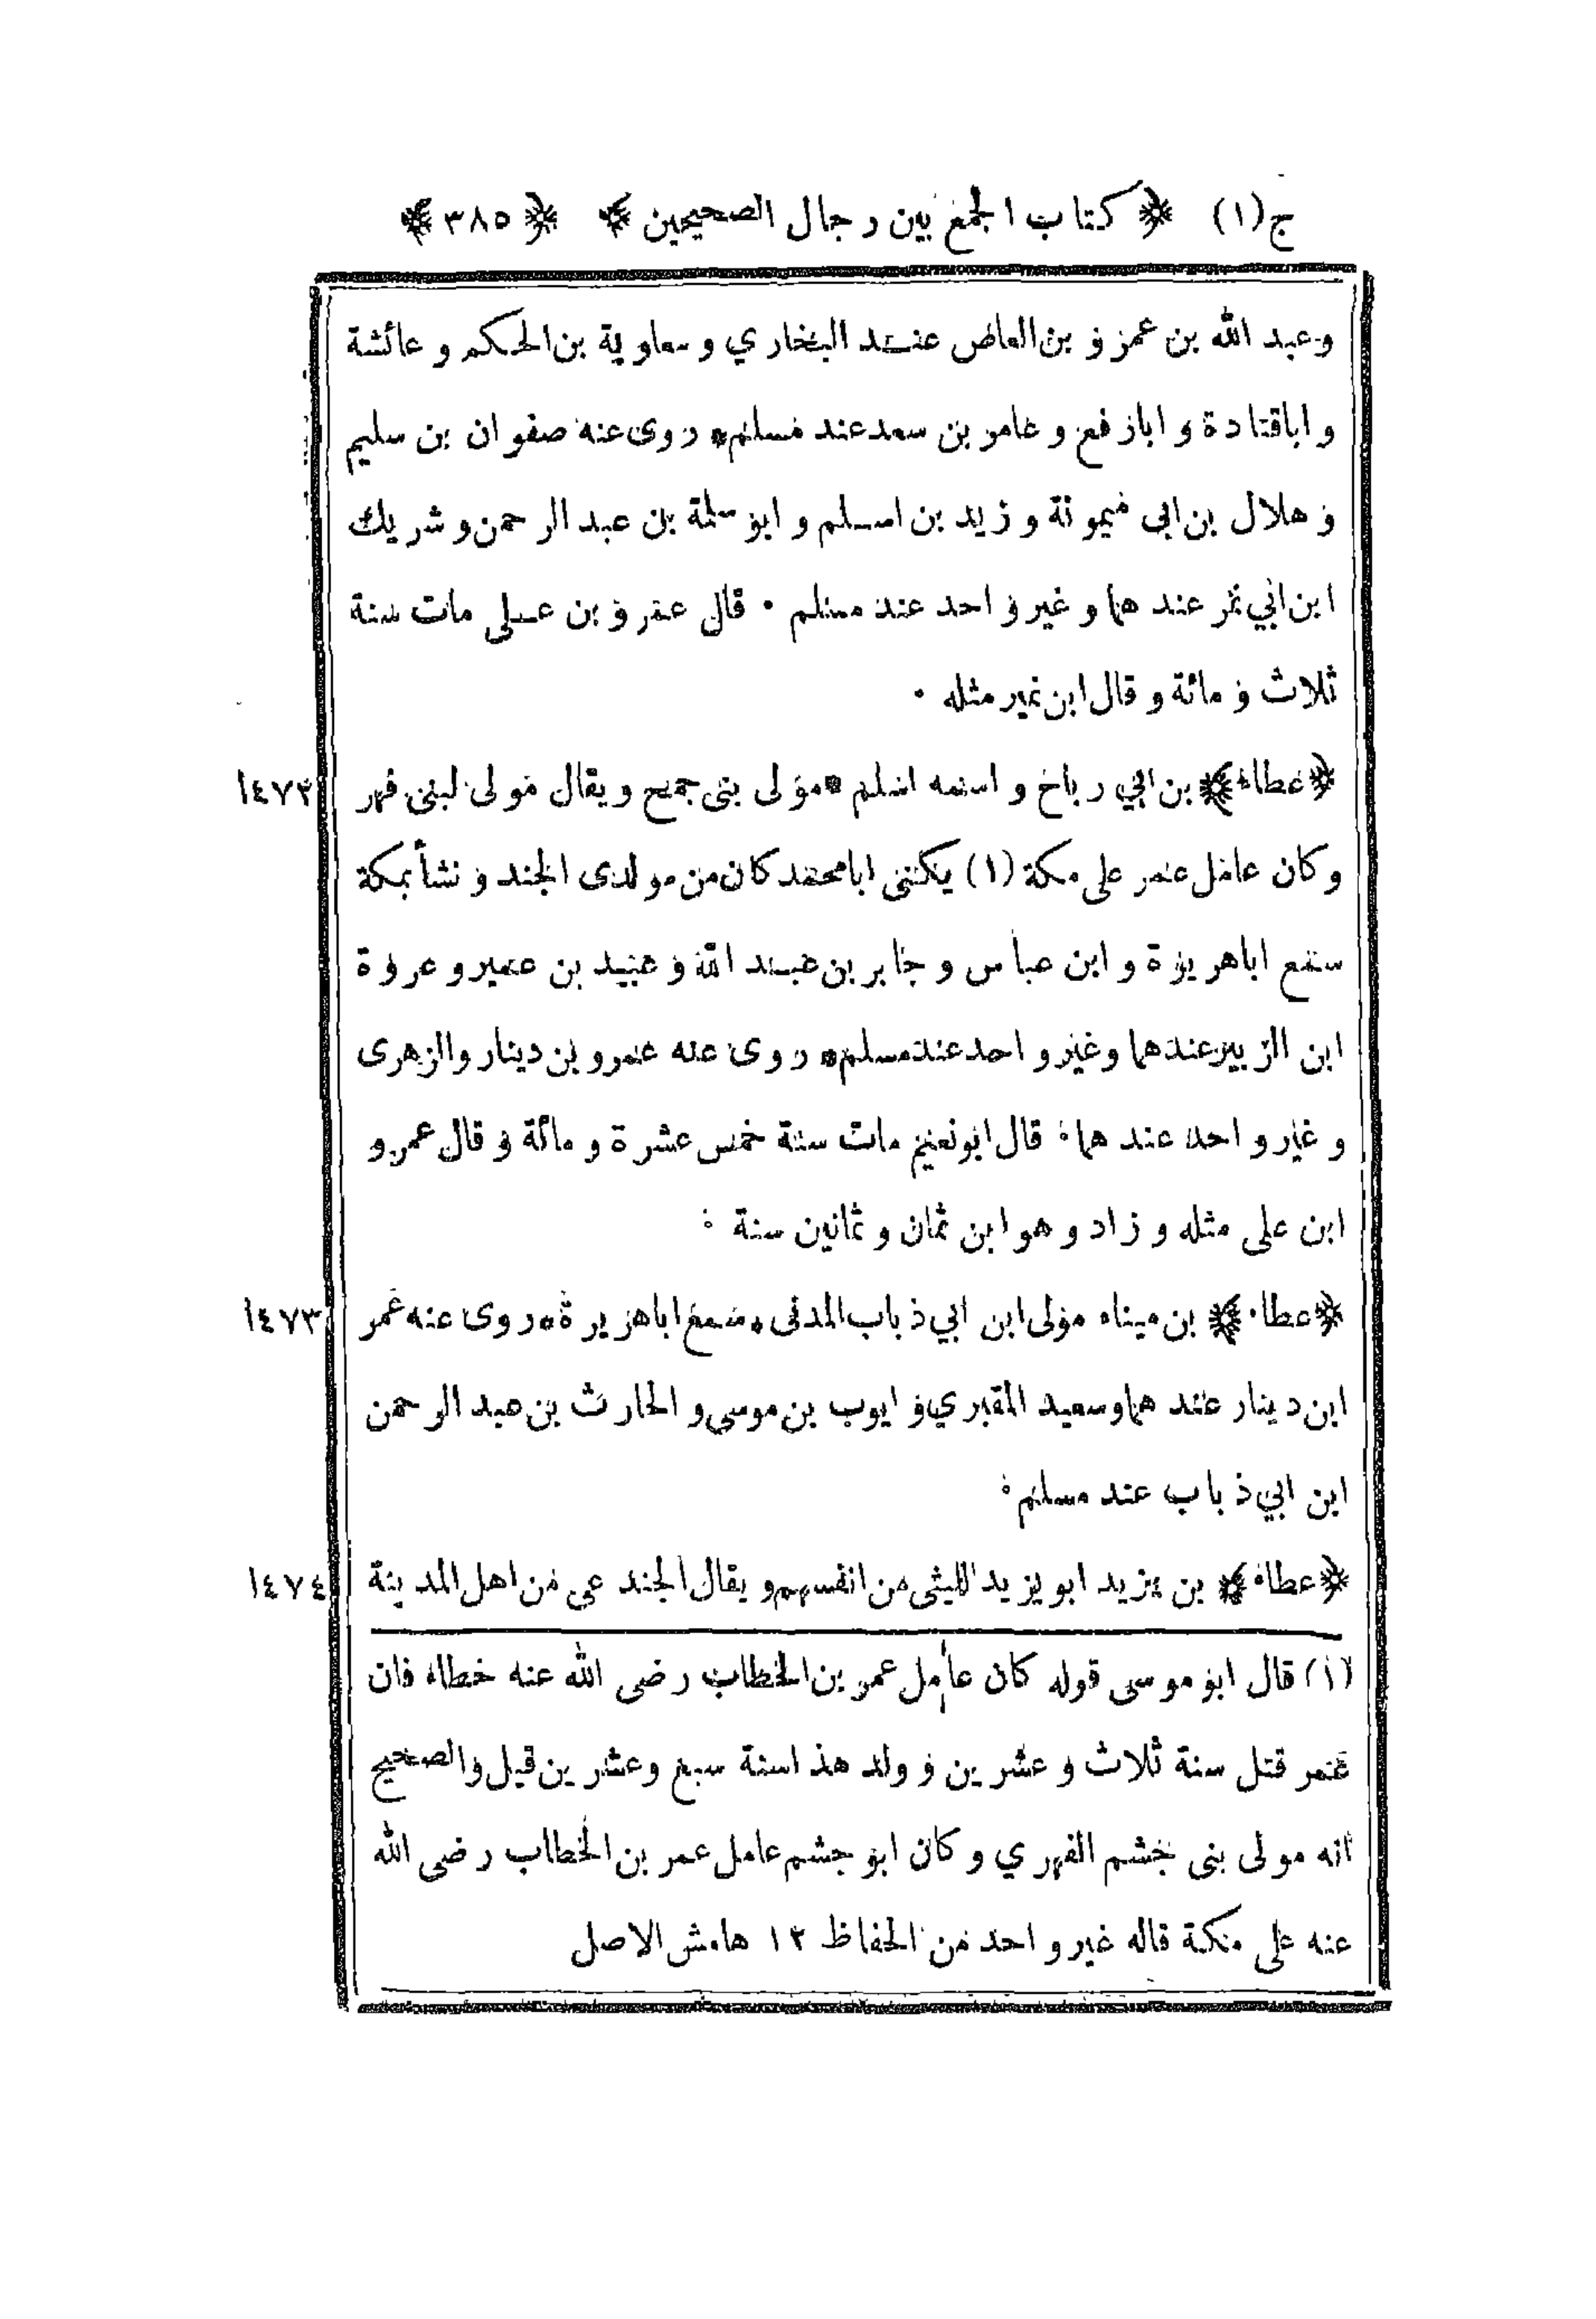 ج (١) ﴿ كتاب الجمع بين رجال الصحيحين ﴾ ﴿ ٣٨٥ ﴾
وعبد الله بن عمرو بن العاص عند البخاري و معاوية بن الحكم و عائشة
و اباقتادة و ابارافع و عامر بن سعد عند مسلم * روى عنه صفوان بن سليم
و هلال بن ابى ميمونة و زيد بن اسلم و ابو سلمة بن عبد الرحمن و شريك
ابن ابي نمر عندهما و غير واحد عند مسلم • قال عمرو بن علي مات سنة
ثلاث و مائة و قال ابن نمير مثله •
﴿ عطاء ﴾ بن ابي رباح و اسمه اسلم * مولى بنى جمح و يقال مولى لبنى فهر ١٤٧٢
وكان عامل عمر على مكة (١) يكنى ابا محمد كان من مولدى الجند و نشأ بمكة
سمع اباهريرة و ابن عباس و جابر بن عبد الله و عبيد بن عمير و عروة
ابن الزبير عندهما وغير واحد عند مسلم * روى عنه عمرو بن دينار والزهرى
و غير واحد عندهما • قال ابونعيم مات سنة خمس عشرة و مائة و قال عمرو
ابن على مثله و زاد و هو ابن ثمان و ثمانين سنة •
﴿ عطاء ﴾ بن ميناء مولى ابن ابي ذباب المدنى * سمع اباهريرة * روى عنه عمر ١٤٧٣
ابن دينار عندهما وسعيد المقبري و ايوب بن موسى و الحارث بن عبد الرحمن
ابن ابي ذباب عند مسلم •
﴿ عطاء ﴾ بن يزيد ابو يزيد الليثى من انفسهم و يقال الجندعى من اهل المدينة ١٤٧٤
(١) قال ابو موسى قوله كان عامل عمر بن الخطاب رضى الله عنه خطاء فان
عمر قتل سنة ثلاث و عشرين و ولد هذا سنة سبع وعشرين قيل والصحيح
انه مولى بنى خشم الفهري و كان ابو جشم عامل عمر بن الخطاب رضى الله
عنه على مكة قاله غير واحد من الحفاظ ١٢ هامش الاصل